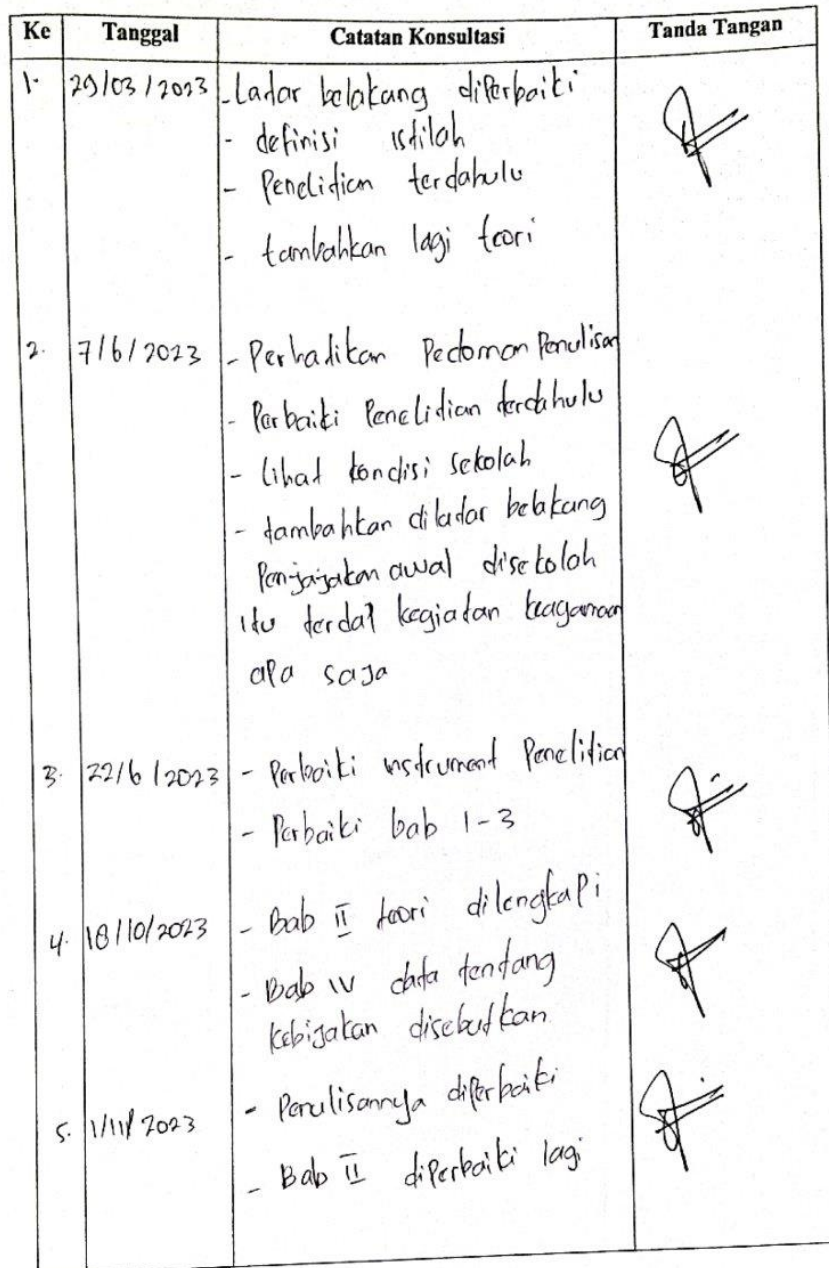 Ke Tanggal Catatan Konsultasi Tanda Tangan
1. 29/03/2023 - Latar belakang diperbaiki
- definisi istilah
- Penelitian terdahulu
- tambahkan lagi teori
2. 7/6/2023 - Perhatikan Pedoman Penulisan
- Perbaiki Penelitian terdahulu
- Lihat kondisi sekolah
- tambahkan dilatar belakang
Penjajakan awal disekolah
itu terdat kegiatan keagamaan
apa saja
3. 22/6/2023 - Perbaiki instrument Penelitian
- Perbaiki bab 1-3
4. 18/10/2023 - Bab II teori dilengkapi
- Bab IV data tentang
kebijakan disebutkan
5. 1/11/2023 - Penulisannya diperbaiki
- Bab II diperbaiki lagi